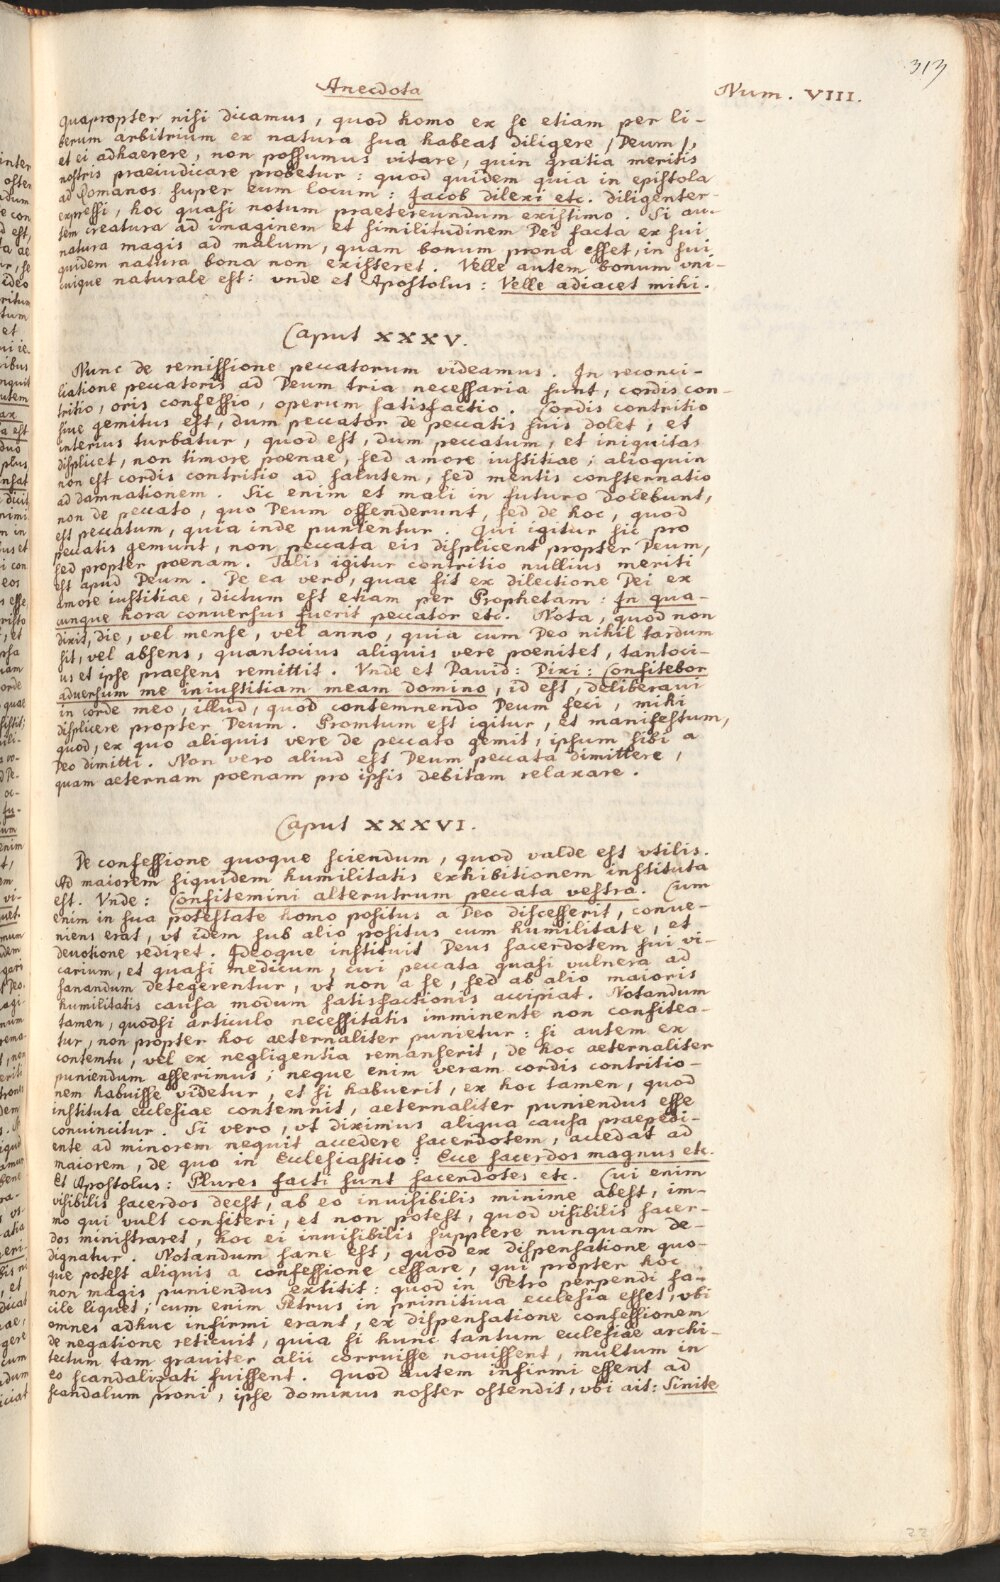 313
Anecdota
Num. VIII.
quapropter nisi dicamus, quod homo ex se etiam per li-
berum arbitrium ex natura sua habeat diligere /Deum/,
et ei adhaerere, non possumus vitare, quin gratia meritis
nostris praeiudicare probetur: quod quidem quia in epistola
ad Romanos super eum locum: Jacob dilexi etc. diligenter
expressi, hoc quasi notum praetereundum existimo. Si au-
tem creatura ad imaginem et similitudinem Dei facta ex sui
natura magis ad malum, quam bonum prona esset, in sui
quidem natura bona non existeret. Velle autem bonum vni-
cuique naturale est: vnde et Apostolus: Velle adiacet mihi.
Caput XXXV.
Nunc de remissione peccatorum videamus. In reconci-
liatione peccatoris ad Deum tria necessaria sunt, cordis con-
tritio, oris confessio, operum satisfactio. Cordis contritio
siue gemitus est, dum peccator de peccatis suis dolet, et
interius turbatur, quod est, dum peccatum, et iniquitas
displicet, non timore poenae, sed amore iustitiae; alioquin
non est cordis contritio ad salutem, sed mentis consternatio
ad damnationem. Sic enim et mali in futuro dolebunt,
non de peccato, quo Deum offenderunt, sed de hoc, quod
est peccatum, quia inde punientur. Qui igitur sic pro
peccatis gemunt, non peccata eis displicent propter Deum,
sed propter poenam. Talis igitur contritio nullius meriti
est apud Deum. De ea vero, quae fit ex dilectione Dei ex
amore iustitiae, dictum est etiam per Prophetam: In qua-
cunque hora conuersus fuerit peccator etc. Nota, quod non
dixit, die, vel mense, vel anno, quia cum Deo nihil tardum
sit, vel absens, quantocius aliquis vere poenitet, tantoci-
us et ipse praesens remittit. Vnde et Dauid: Dixi: Confitebor
aduersum me iniustitiam meam domino, id est, deliberaui
in corde meo, illud, quod contemnendo Deum feci, mihi
displicere propter Deum. Promtum est igitur, et manifestum,
quod, ex quo aliquis vere de peccato gemit, ipsum sibi a
Deo dimitti. Non vero aliud est Deum peccata dimittere,
quam aeternam poenam pro ipsis debitam relaxare.
Caput XXXVI.
De confessione quoque sciendum, quod valde est vtilis.
Ad maiorem siquidem humilitatis exhibitionem instituta
est. Vnde: Confitemini alterutrum peccata vestra. Cum
enim in sua potestate homo positus a Deo discesserit, conue-
niens erat, vt idem sub alio positus cum humilitate, et
deuotione rediret. Ideoque instituit Deus sacerdotem sui vi-
carium, et quasi medicum, cui peccata quasi vulnera ad
sanandum detegerentur, vt non a se, sed ab alio maioris
humilitatis causa modum satisfactionis accipiat. Notandum
tamen, quodsi articulo necessitatis imminente non confitea-
tur, non propter hoc aeternaliter punietur: si autem ex
contemtu, vel ex negligentia remanserit, de hoc aeternaliter
puniendum asserimus; neque enim veram cordis contritio-
nem habuisse videtur, et si habuerit, ex hoc tamen, quod
instituta ecclesiae contemnit, aeternaliter puniendus esse
conuincitur. Si vero, vt diximus aliqua causa praepedi-
ente ad minorem nequit accedere sacerdotem, accedat ad
maiorem, de quo in Ecclesiastico: Ecce sacerdos magnus etc.
Et Apostolus: Plures facti sunt sacerdotes etc. Cui enim
visibilis sacerdos deest, ab eo inuisibilis minime abest, im-
mo qui vult confiteri, et non potest, quod visibilis sacer-
dos ministraret, hoc ei inuisibilis supplere nunquam de-
dignatur. Notandum sane est, quod ex dispensatione quo-
que potest aliquis a confessione cessare, qui propter hoc
non magis puniendus extitit: quod in Petro perpendi fa-
cile liquet; cum enim Petrus in primitiua ecclesia esset, vbi
omnes adhuc infirmi erant, ex dispensatione confessionem
de negatione reticuit, quia si hunc tantum ecclesiae archi-
tectum tam grauiter alii corruisse nouissent, multum in
eo scandalizati fuissent. Quod autem infirmi essent ad
scandalum proni, ipse dominus noster ostendit, vbi ait: Sinite